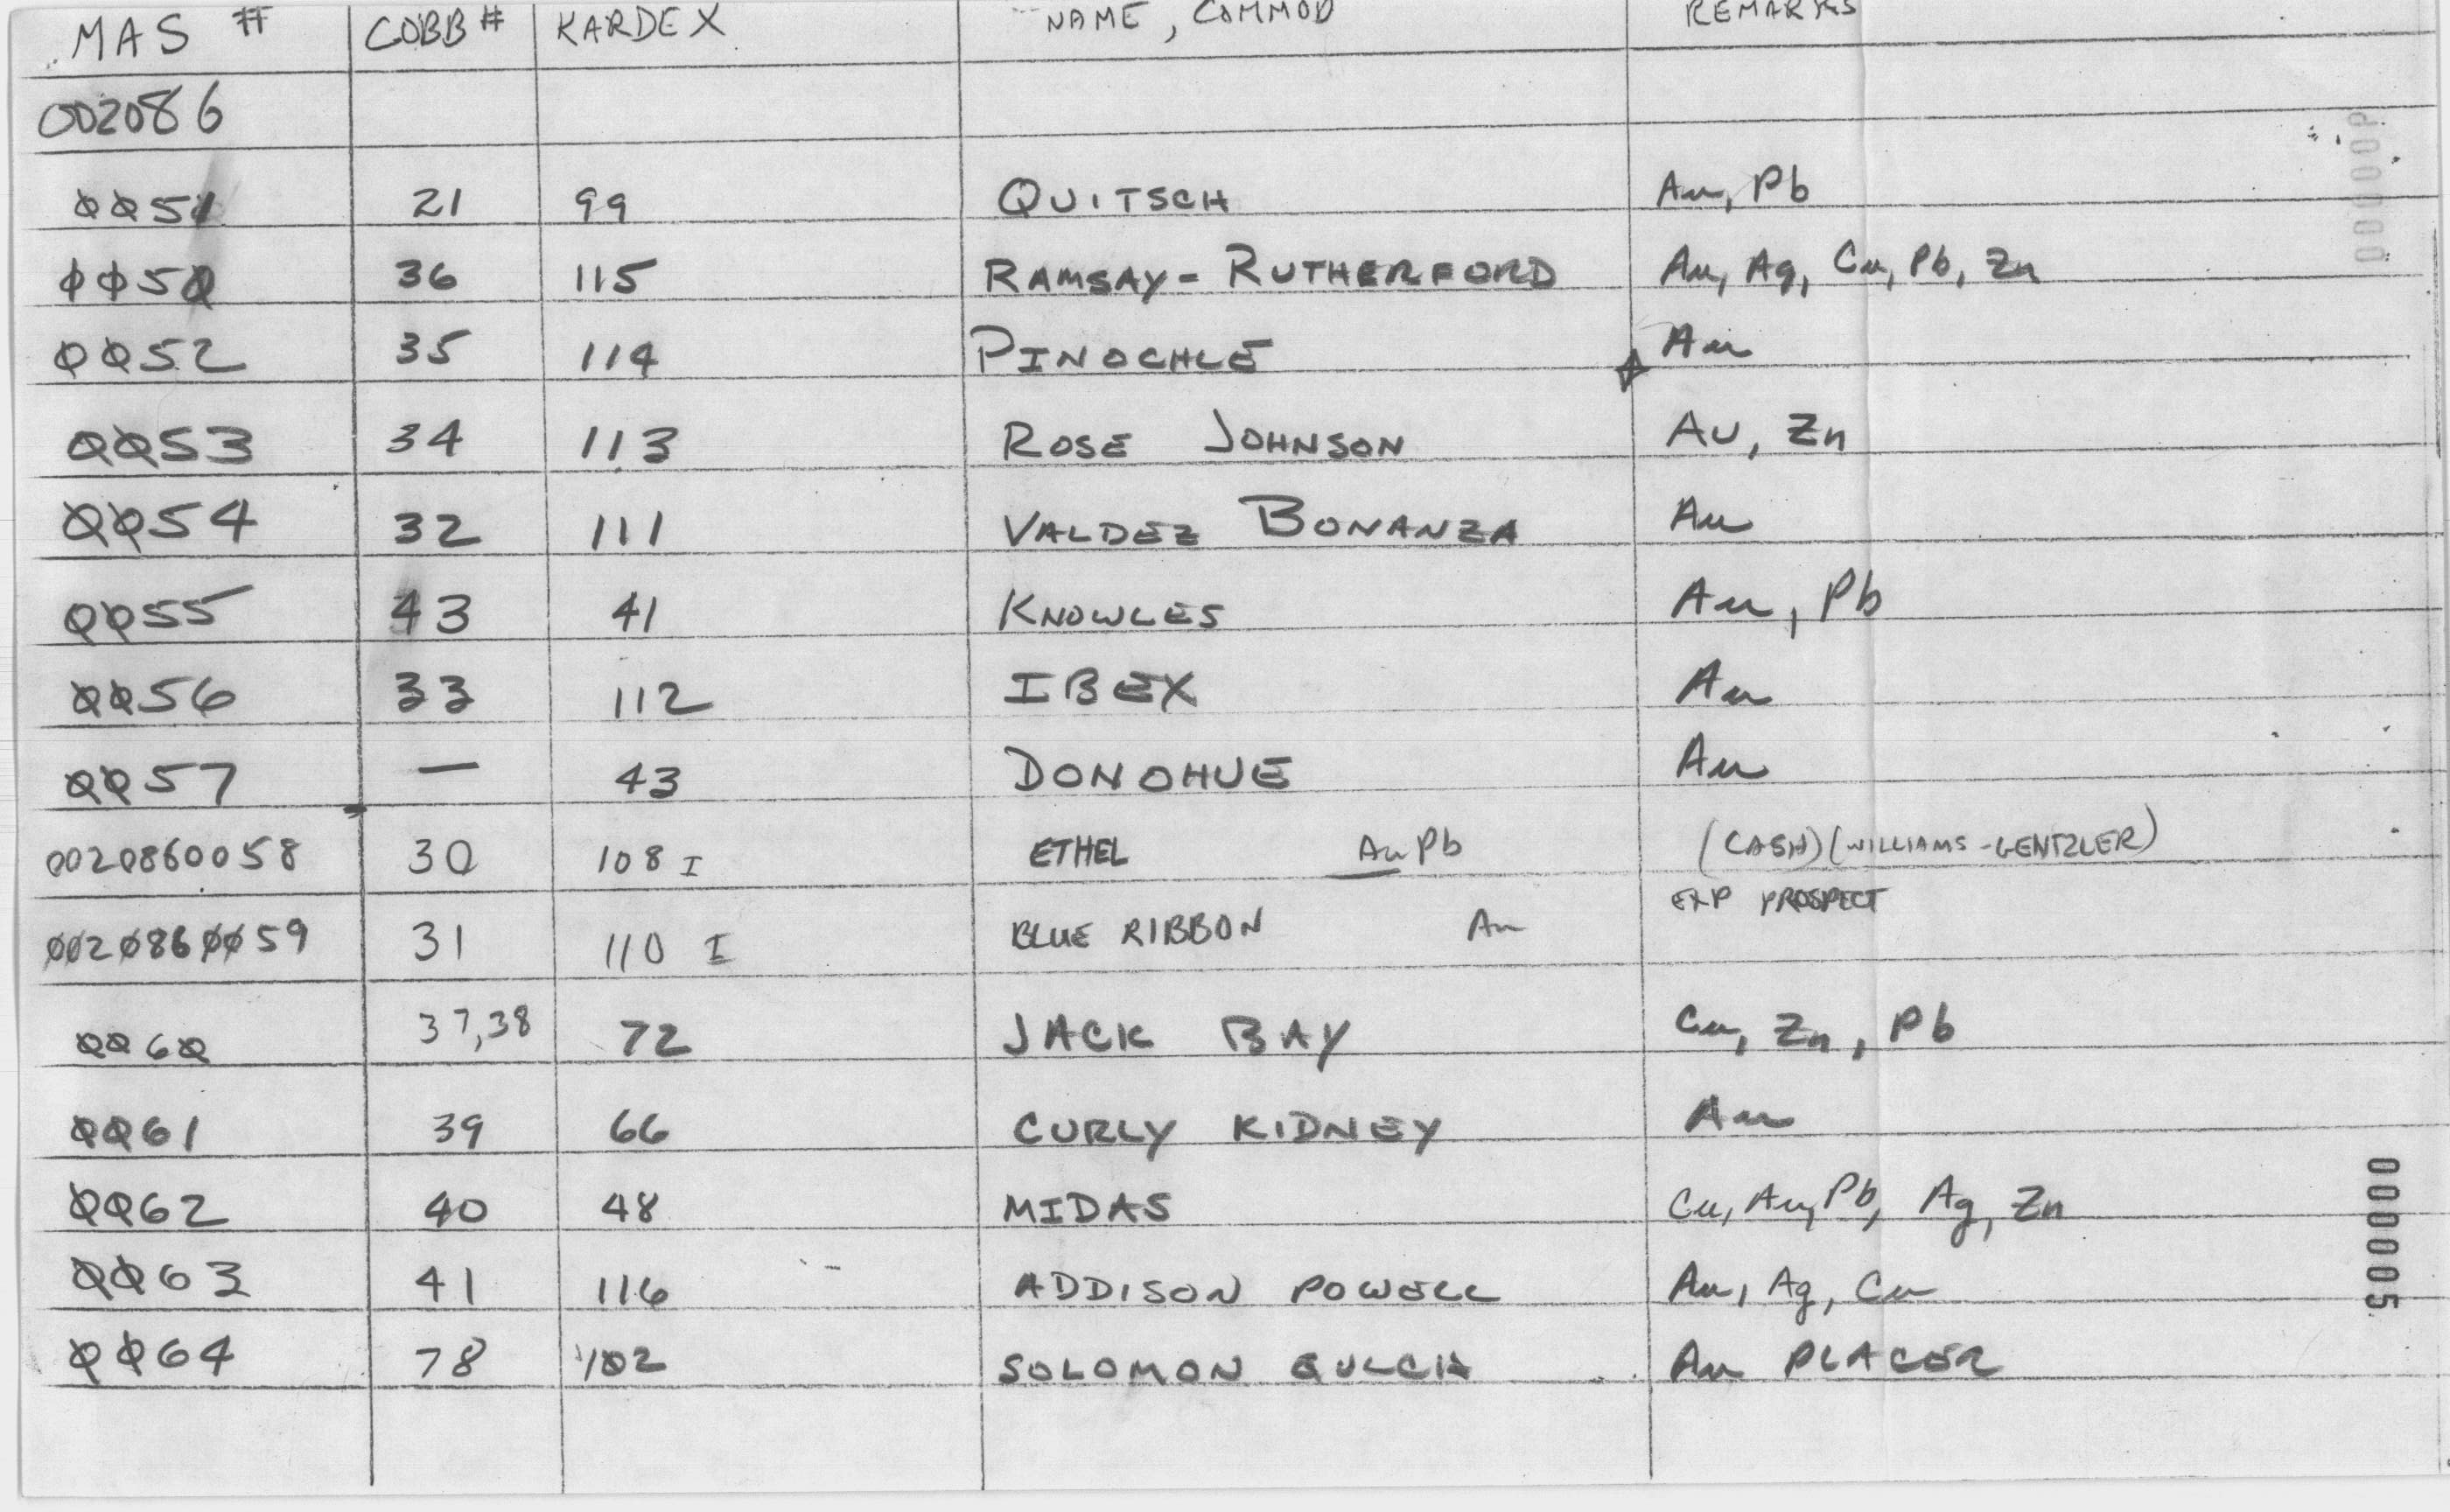 MAS # COBB # KARDEX NAME, COMMOD REMARKS
002086
0051 21 99 QUITSCH Au, Pb
0050 36 115 RAMSAY-RUTHERFORD Au, Ag, Cu, Pb, Zn
0052 35 114 PINOCHLE Au
0053 34 113 ROSE JOHNSON AU, Zn
0054 32 111 VALDEZ BONANZA Au
0055 43 41 KNOWLES Au, Pb
0056 33 112 IBEX Au
0057 — 43 DONOHUE Au
0020860058 30 108 I ETHEL Au Pb (CASH) (WILLIAMS-GENTZLER)
EXP PROSPECT
0020860059 31 110 I BLUE RIBBON Au
0060 37,38 72 JACK BAY Cu, Zn, Pb
0061 39 66 CURLY KIDNEY Au
0062 40 48 MIDAS Cu, Au, Pb, Ag, Zn
0063 41 116 ADDISON POWELL Au, Ag, Cu
0064 78 102 SOLOMON GULCH Au PLACER
000005